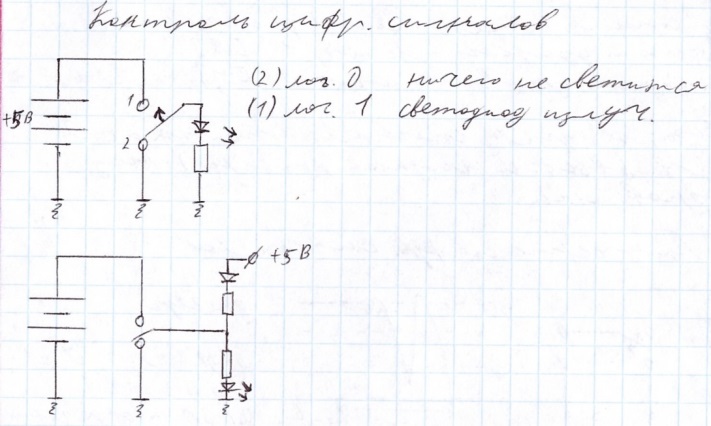 Контроль цифр. сигналов
(2) лог. 0 ничего не светится
(1) лог. 1 светодиод излуч.
1
+5В
2
+5В